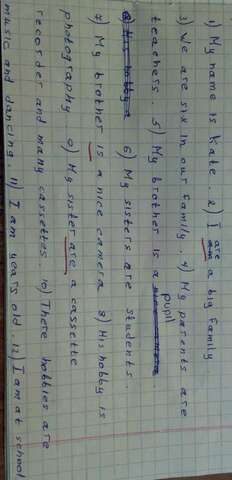 1) My name is Kate 2) I are a big family
3) We are six in our family. 4) My parents are
teachers. 5) My brother is a pupil
6) My sisters are students.
7) My brother is a nice camera 8) His hobby is
photography 9) My sister are a cassette
recorder and many cassettes. 10) There hobbies are
music and dancing. 11) I am years old 12) I am at school